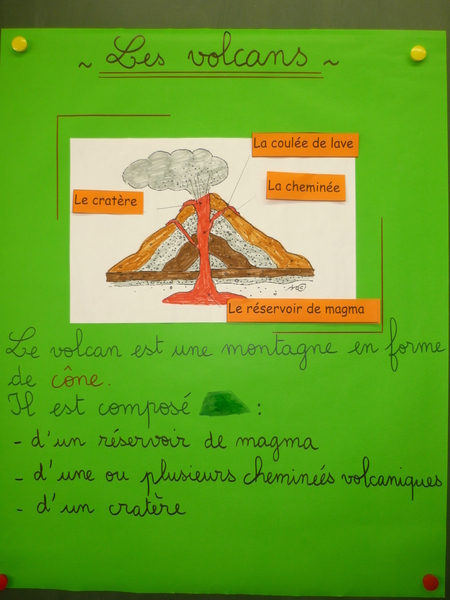 ~ Les volcans ~
La coulée de lave
La cheminée
Le cratère
Le réservoir de magma
Le volcan est une montagne en forme
de cône.
Il est composé :
- d'un réservoir de magma
- d'une ou plusieurs cheminées volcaniques
- d'un cratère